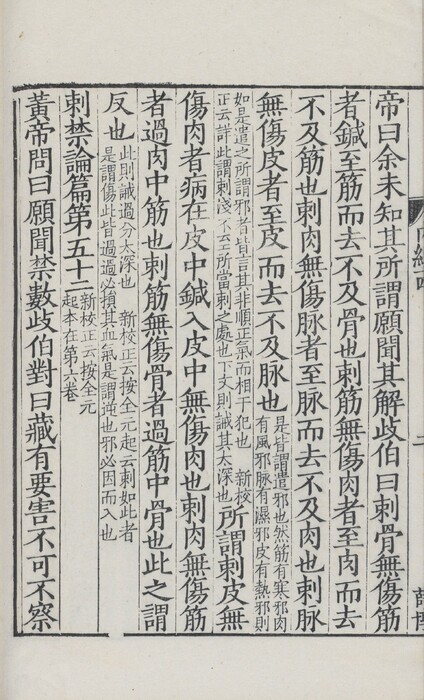 帝曰余未知其所謂願聞其解歧伯曰刺骨無傷筋
者鍼至筋而去不及骨也刺筋無傷肉者至肉而去
不及筋也刺肉無傷脉者至脉而去不及肉也刺脉
無傷皮者至皮而去不及脉也
是皆謂遣邪也然筋有寒邪肉
有風邪脉有濕邪皮有熱邪則
如是遣之所謂邪者皆言其非順正氣而相干犯也 新校
正云詳此謂刺淺不至所當刺之處也下文則誡其太深也
所謂刺皮無
傷肉者病在皮中鍼入皮中無傷肉也刺肉無傷筋
者過肉中筋也刺筋無傷骨者過筋中骨也此之謂
反也
此則誡過分太深也 新校正云按全元起云刺如此者
是謂傷此皆過過必損其血氣是謂逆也邪必因而入也
刺禁論篇第五十二
新校正云按全元
起本在第六卷
黃帝問曰願聞禁數歧伯對曰藏有要害不可不察
二